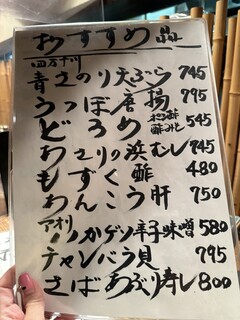 おすすめ品
四万十川
青さのり天ぷら 745
うつぼ唐揚 795
どろめ ポン酢 酢みそ 545
あさりの浜むし 745
もずく酢 480
あんこう肝 750
アオリイカゲソ辛子味噌 580
チャンバラ貝 795
さばあぶり寿し 800